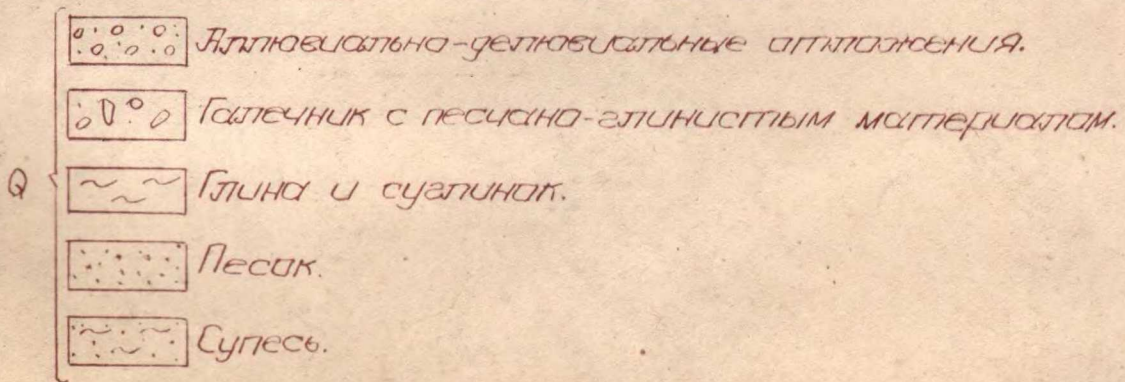 Аллювиально-делювиальные отложения.
Галечник с песчано-глинистым материалом.
Q
Глина и суглинок.
Песок.
Супесь.